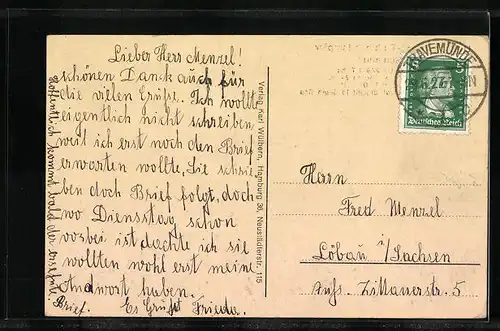 Lieber Herr Menzel!
schönen Dank auch für
die vielen Grüße. Ich wollte
eigentlich nicht schreiben,
weil ich erst noch den Brief
erwarten wollte, Sie schrie-
ben doch Brief folgt, doch
wo Diensstag schon
vorbei ist dachte ich sie
wollten wohl erst meine
Andwort haben.
Es Grüßt Frieda.
Hoffentlich kommt bald der
Brief.
Verlag Karl Wülbern, Hamburg 36, Neustädterstr. 115
TRAVEMÜNDE
Deutsches Reich
Herrn
Fred Menzel
Löbau i/Sachsen
Zittauerstr. 5